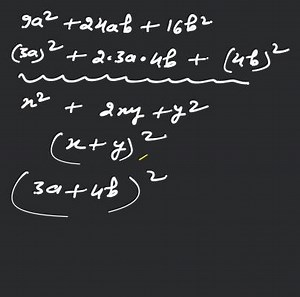 9a² + 24ab + 16b²
(3a)² + 2·3a·4b + (4b)²
x² + 2xy + y²
(x + y)²
(3a + 4b)²